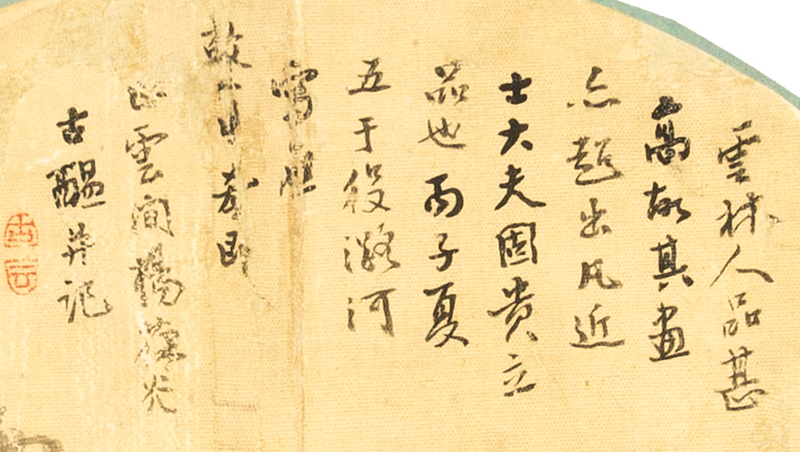 雲林人品甚
高故其畫
亦超出凡近
士大夫固貴立
品也丙子夏
五于役潞河
寫應
故
雲間楊
古醖并記